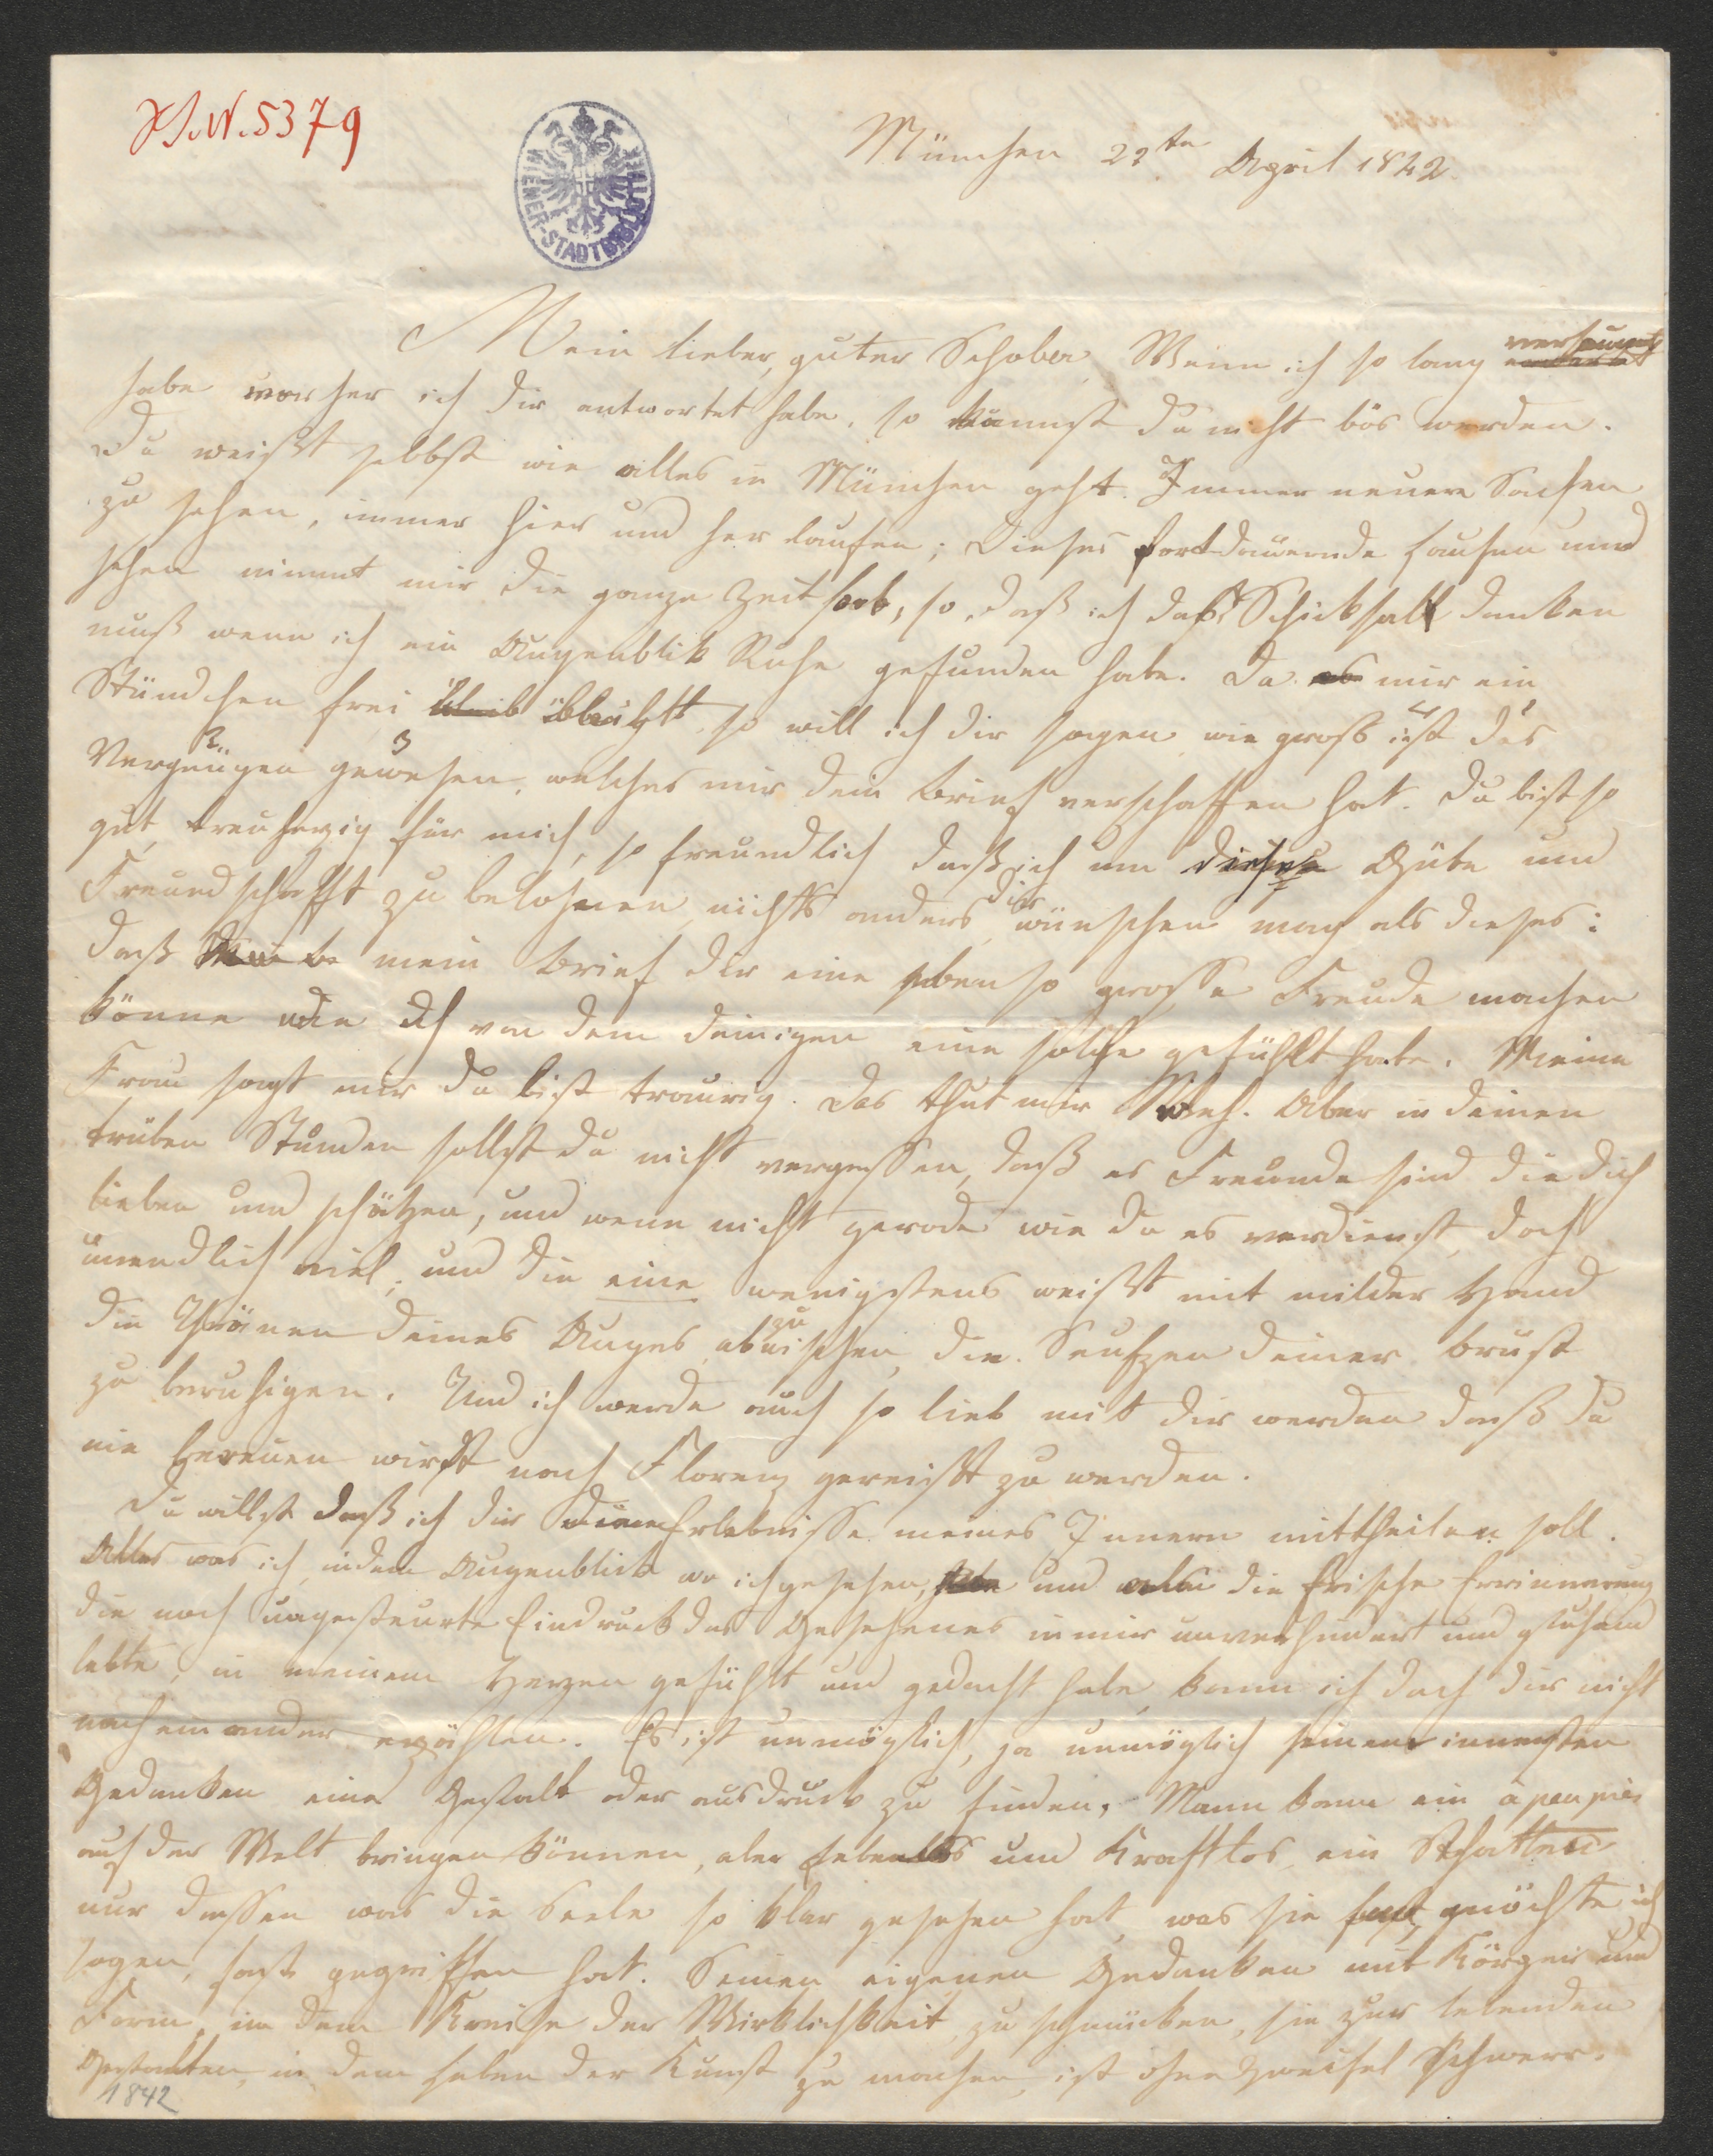 H.I.N. 5379
WIENER-STADTBIBLIOTHEK
München 22ten April 1842.
Mein lieber, guter Schober. Wenn ich so lang versäumt
habe vorher ich dir antwortet habe, so kannst du nicht bös werden.
Du weißt selbst wie alles in München geht. Immer neuere Sachen
zu sehen, immer hier und her laufen; dieses fortdauernde laufen und
sehen nimmt mir die ganze Zeit ab, so, daß ich das Schicksall danken
muß wenn ich ein Augenblik Ruhe gefunden habe. Da es mir ein
Stündchen frei bleibt so will ich dir sagen wie groß ist das
Vergnügen gewesen, welches mir dein Brief verschaffen hat. Du bist so
gut, treuherzig für mich, so freundlich daß ich um diese Güte und
Freundschafft zu belohnen nichts anders dir wünschen mag als dieses:
daß mein Brief dir eine eben so grosse Freude machen
könne wie ich von dem deinigen eine solche gefühlt habe. Meine
Frau sagt mir du bist traurig. Das thut mir Weh. Aber in deinen
trüben Stunden sollst du nicht vergessen, daß es Freunde sind die dich
lieben und schätzen, und wenn nicht gerade wie du es verdienst, doch
unendlich viel, und die eine wenigstens weißt mit milder Hand
die Thränen deines Auges abzuwischen, die Seufzen deiner Brust
zu beruhigen. Und ich werde auch so lieb mit dir werden daß du
nie bereuen wirst nach Florenz gereißt zu werden.
Du willst daß ich dir die Erlebnisse meines Innern mittheilen soll.
Alles was ich, in dem Augenblick wo ich gesehen, und als die frische Errinnerung
die noch Eindruck des Gesehenes in mir unverhindert und glühend
lebte, in meinem Herzen gefühlt und gedacht habe, kann ich doch dir nicht
nach einander erzählen. Es ist unmöglich, ja unmöglich seinen innersten
Gedanken eine Gestalt oder ausdruck zu finden. Mann kann ein à peu près
auf der Welt bringen können, aber lebenlos und Kraftlos, ein Schatten
nur dessen was die Seele so klar gesehen hat, was sie fast, möchte ich
sagen, fast gegriffen hat. Seinen eigenen Gedanken mit Körper und
Form, in dem Kreise der Wirklichkeit, zu schmücken, sie zur lebenden
Gestalten, in dem leben der Kunst zu machen, ist ohne Zweifel Schwer.
1842